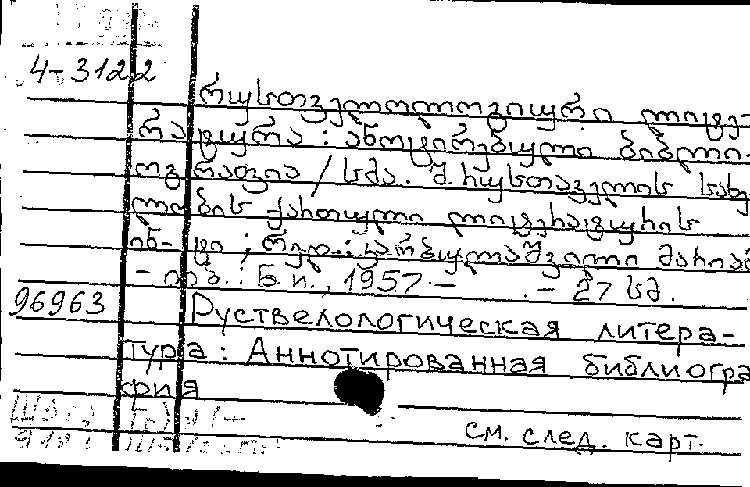 4-3122
რუსთველოლოგიური ლიტე-
რატურა : ანოტირებული ბიბლი-
ოგრაფია / სმა. შ. რუსთაველის სახე
ლობის ქართული ლიტერატურის
ინ-ტი ; რედ.: კარბელაშვილი მარიამ
- თბ. : Б. и., 1957. - . - 27 სმ.
96963 Руствелологическая литера-
тура : Аннотированная библиогра
фия
см. след. карт.